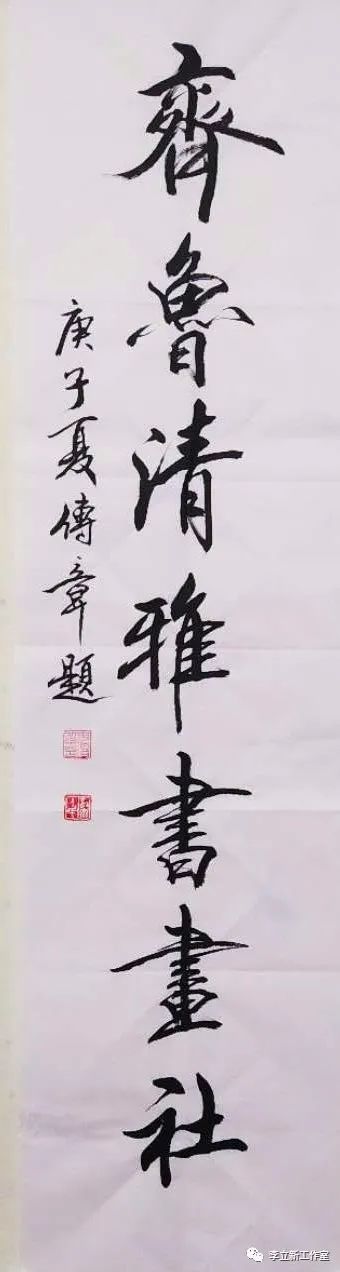 齊魯清雅書畫社
庚子夏傳章題
李立新工作室